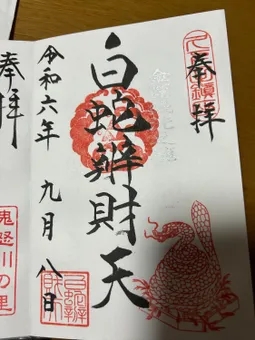 奉拝
白蛇辨財天
令和六年 九月 八日
奉拝
鬼怒川の里